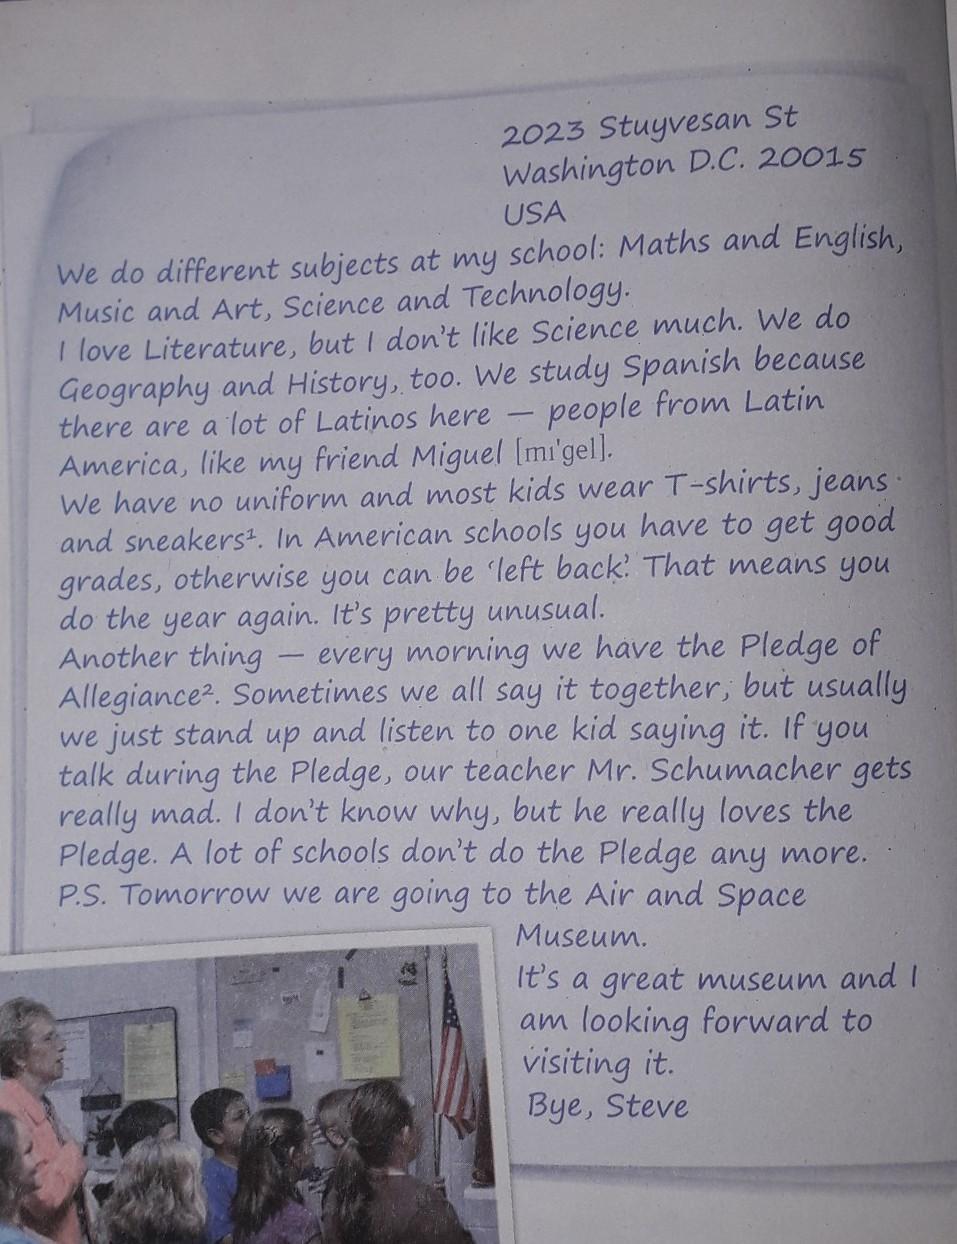 2023 Stuyvesan St
Washington D.C. 20015
USA
We do different subjects at my school: Maths and English,
Music and Art, Science and Technology.
I love Literature, but I don't like Science much. We do
Geography and History, too. We study Spanish because
there are a lot of Latinos here — people from Latin
America, like my friend Miguel [mɪˈgel].
We have no uniform and most kids wear T-shirts, jeans
and sneakers¹. In American schools you have to get good
grades, otherwise you can be ‘left back’. That means you
do the year again. It's pretty unusual.
Another thing — every morning we have the Pledge of
Allegiance². Sometimes we all say it together, but usually
we just stand up and listen to one kid saying it. If you
talk during the Pledge, our teacher Mr. Schumacher gets
really mad. I don't know why, but he really loves the
Pledge. A lot of schools don't do the Pledge any more.
P.S. Tomorrow we are going to the Air and Space
Museum.
It's a great museum and I
am looking forward to
visiting it.
Bye, Steve